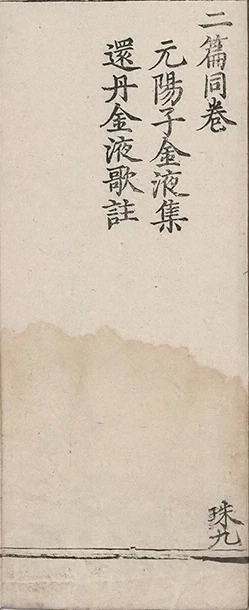 二篇同卷
元陽子金液集
還丹金液歌註
珠九